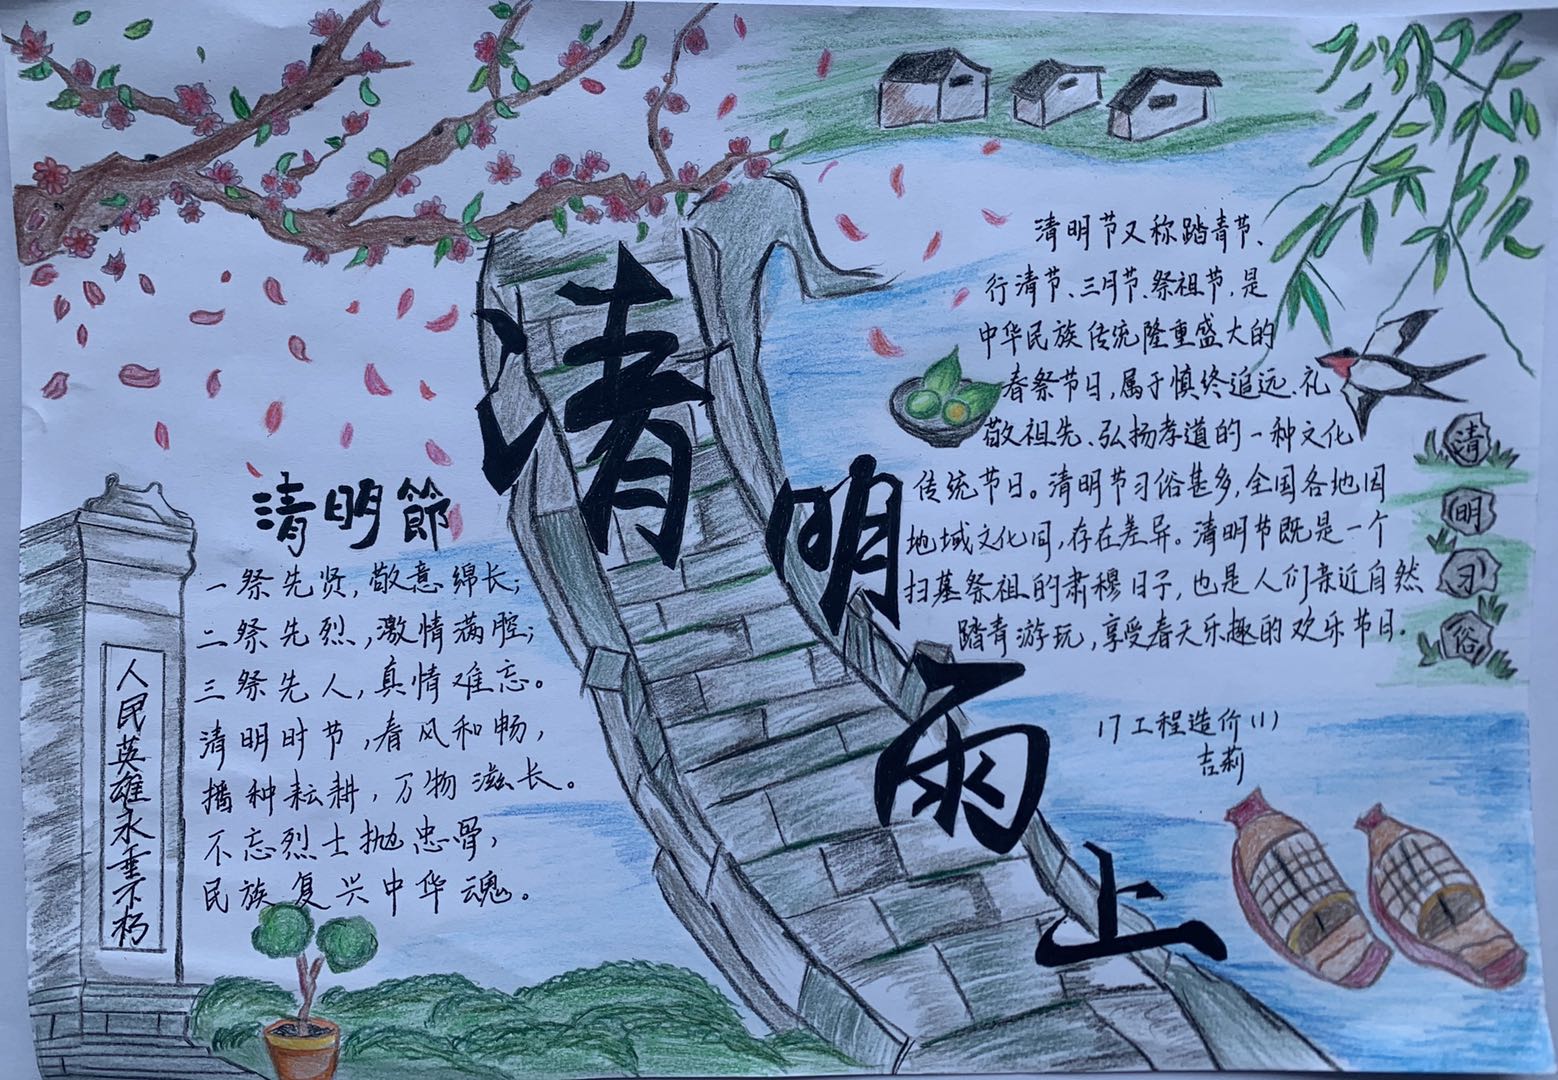 清明雨上
清明節
一祭先贤,敬意绵长;
二祭先烈,激情满腔;
三祭先人,真情难忘。
清明时节,春风和畅,
播种耘耕,万物滋长。
不忘烈士抛忠骨,
民族复兴中华魂。
人民英雄永垂不朽
清明节又称踏青节、
行清节、三月节、祭祖节,是
中华民族传统隆重盛大的
春祭节日,属于慎终追远、礼
敬祖先、弘扬孝道的一种文化
传统节日。清明节习俗甚多,全国各地因
地域文化同,存在差异。清明节既是一个
扫墓祭祖的肃穆日子,也是人们亲近自然
踏青游玩,享受春天乐趣的欢乐节日.
清明习俗
17工程造价(1)
吉莉